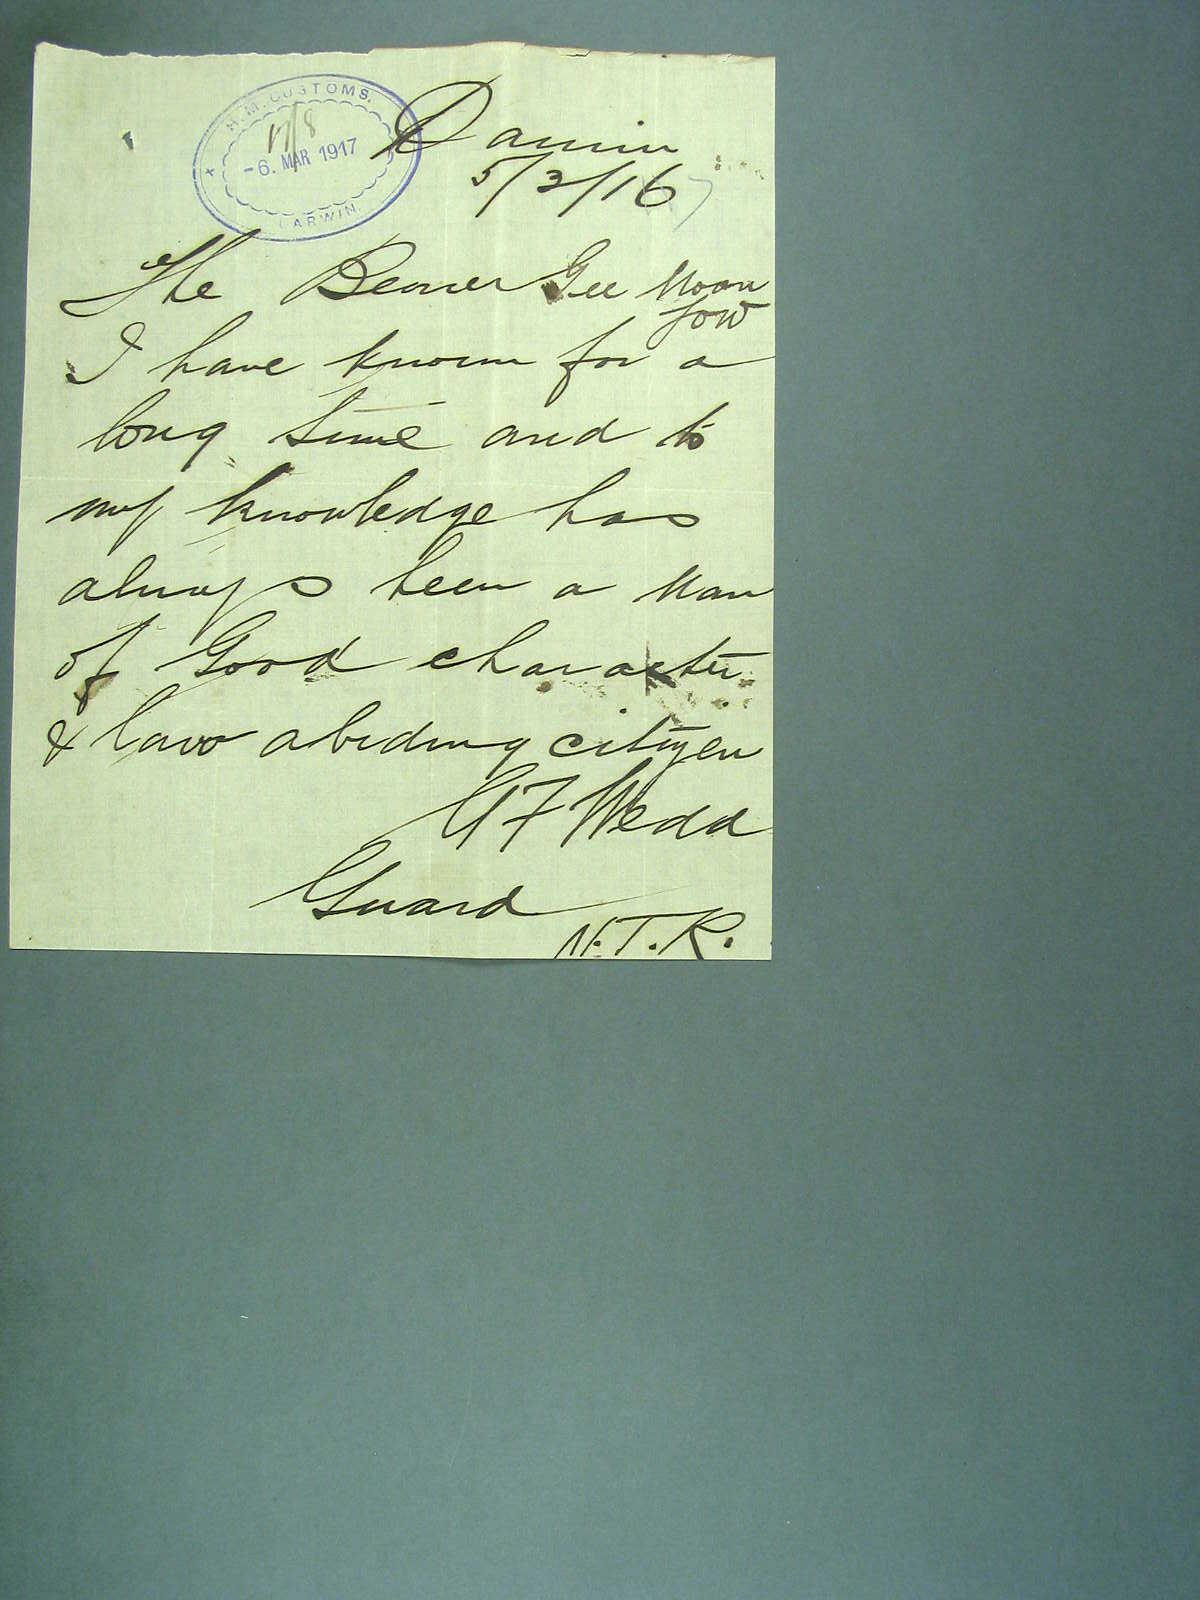 H.M. CUSTOMS.
-6. MAR 1917
DARWIN
Darwin
5/3/16 7
The Bearer Gee Moon
Fow
I have known for a
long time and to
my knowledge has
always been a man
of Good character
& law abiding citizen
F Wedd
Guard
N.T.R.